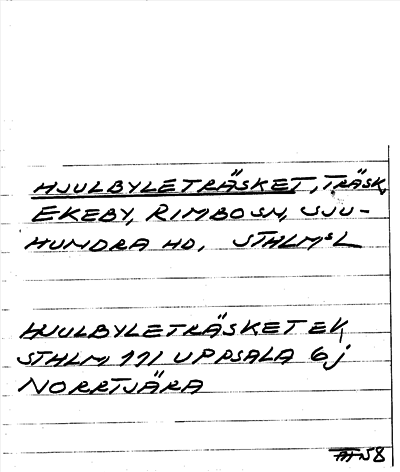 HJULBYLETRÄSKET, TRÄSK,
EKEBY, RIMBO SN, SJU-
HUNDRA HD, STHLMS L
HJULBYLETRÄSKET EK
STHLM 11I UPPSALA 6j
NORRTJÄRA